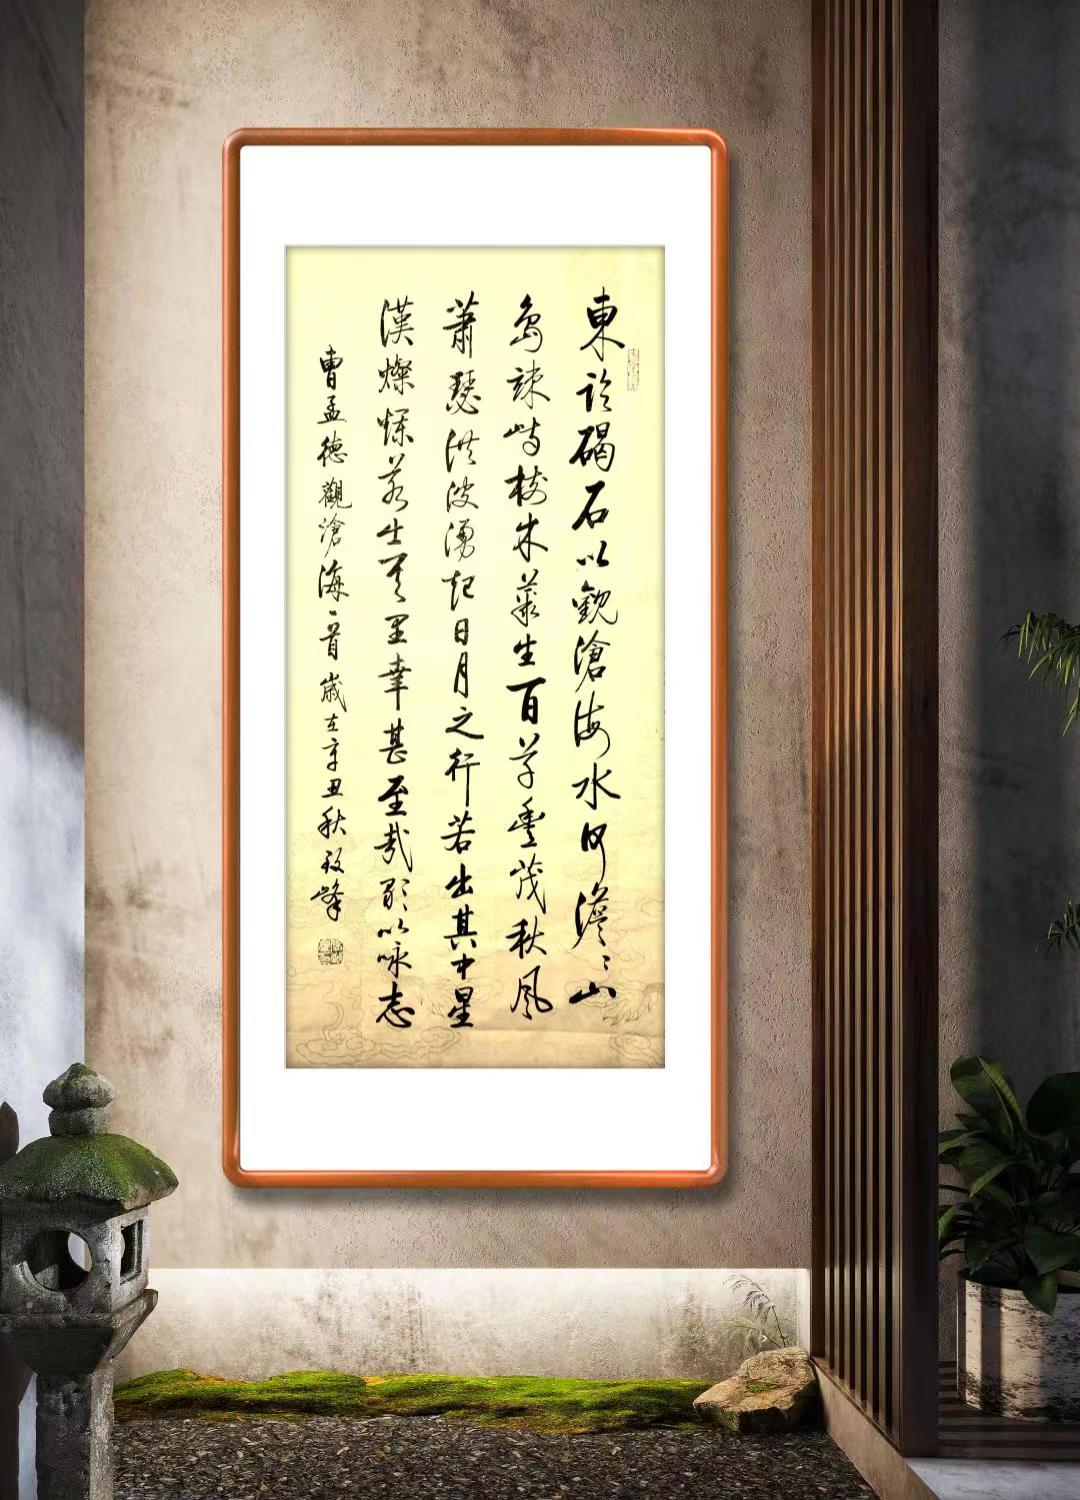 東臨碣石以觀滄海水何澹〻山
島竦峙樹木叢生百草豐茂秋風
蕭瑟洪波湧起日月之行若出其中星
漢燦爛若出其里幸甚至哉歌以咏志
曹孟德觀滄海一首歲在辛丑秋